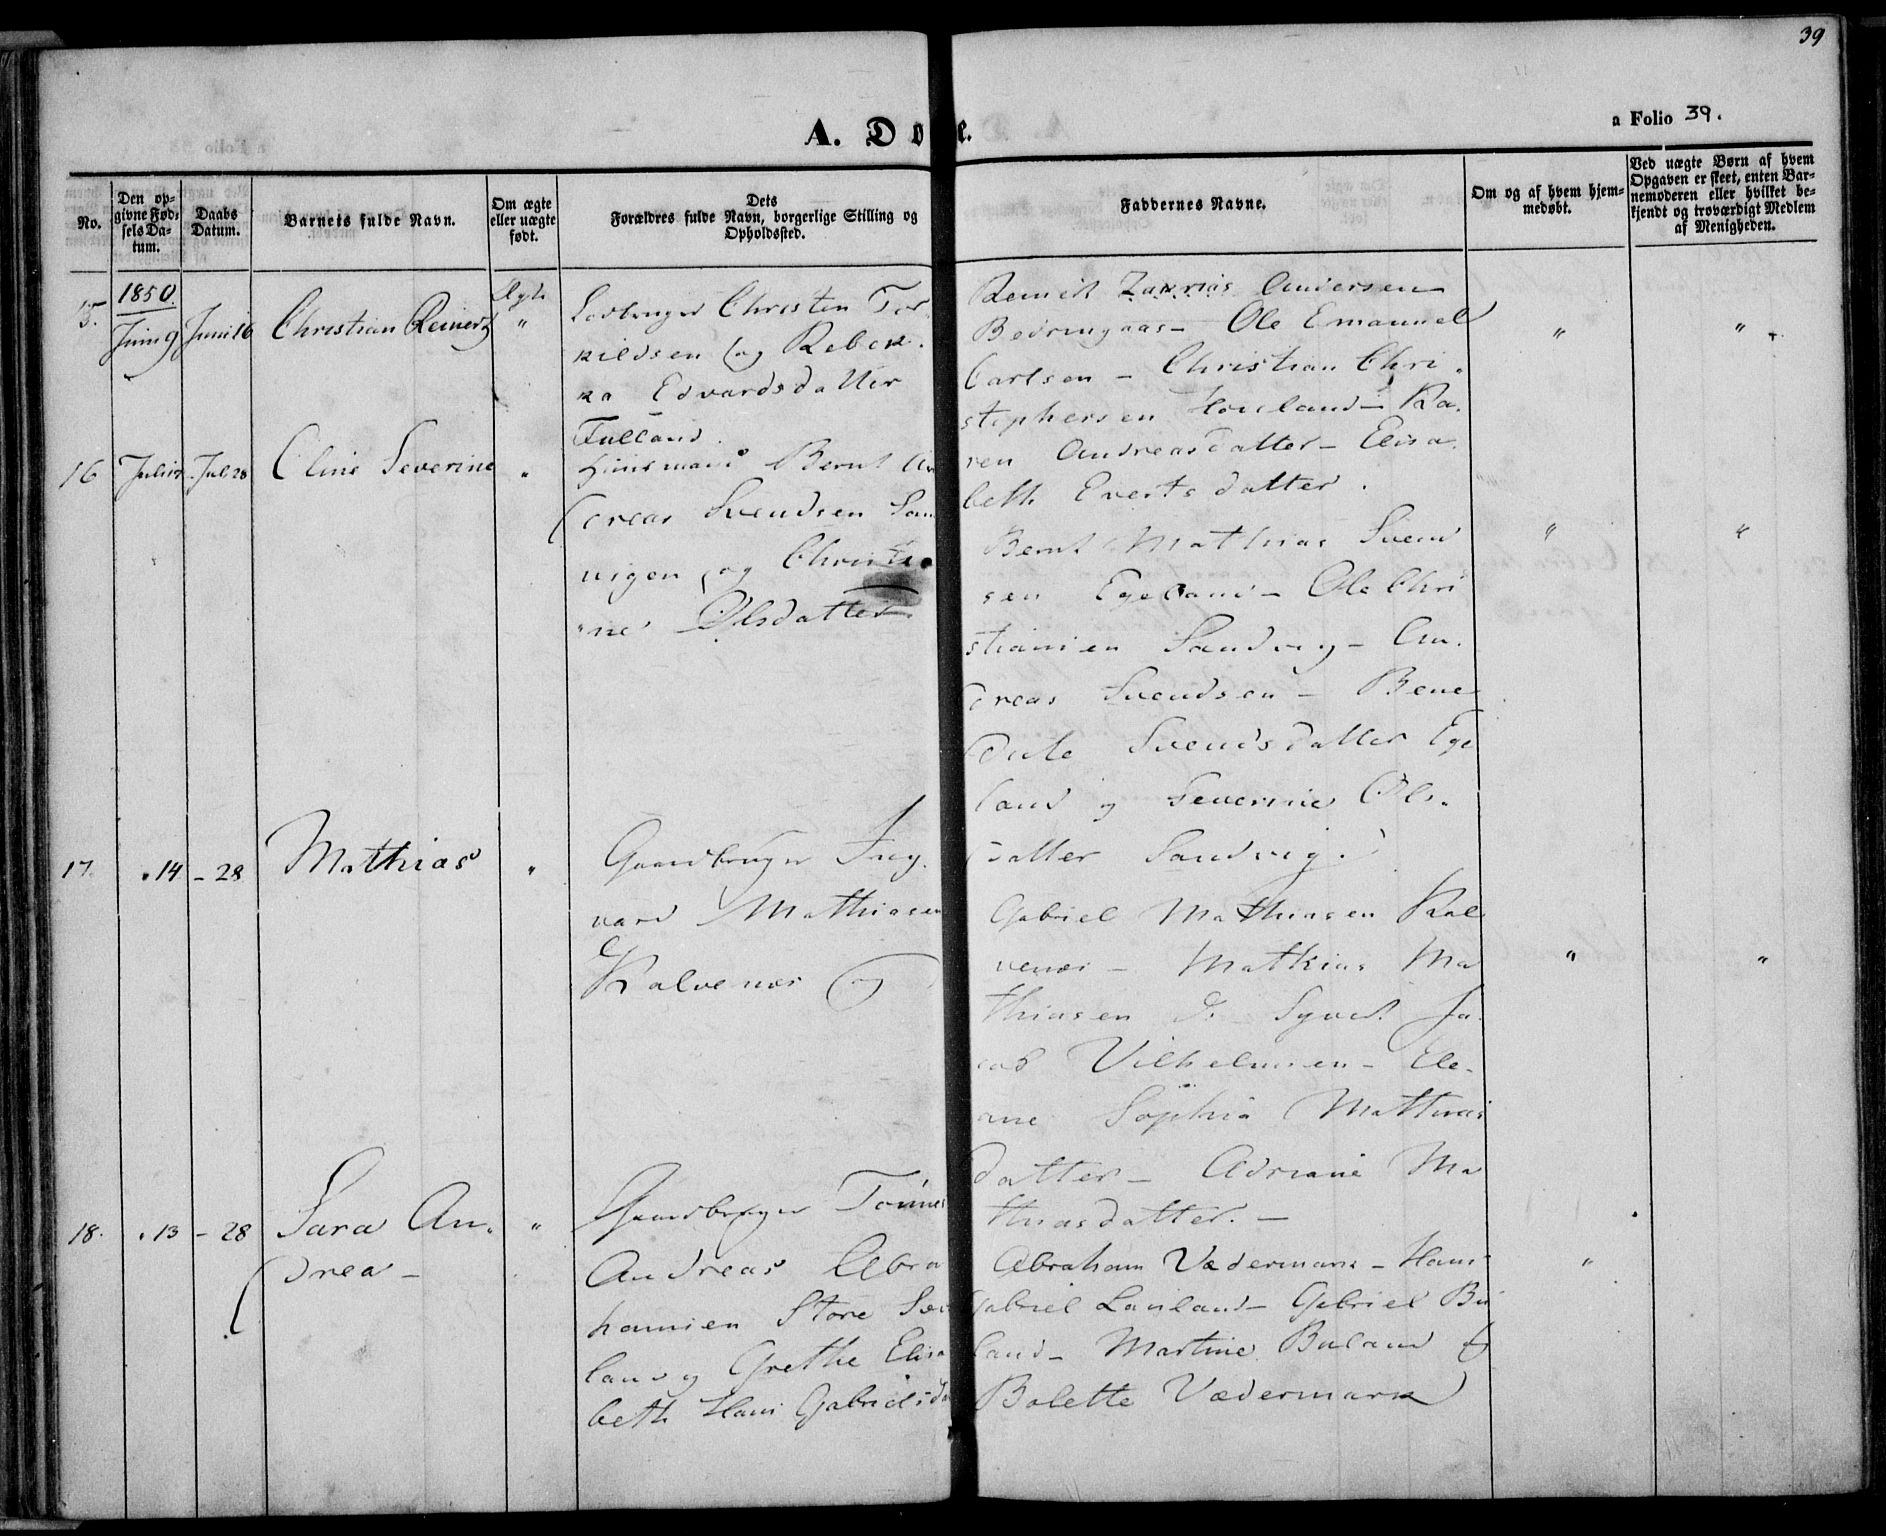 39
A. Døbte.
a Folio 39.
No.
Den op-
givne Fød-
sels Da-
tum.
Daabs
Datum.
Barnets fulde Navn.
Om ægte
eller uægte
født.
Dets
Forældres fulde Navn, borgerlige Stilling og
Opholdssted.
Faddernes Navne.
Om og af hvem hjem-
medøbt.
Ved uægte Børn af hvem
Opgaven er skeet, enten Bar-
nemoderen eller hvilket be-
kjendt og troværdigt Medlem
af Menigheden.
1850.
15. Juni 9 Juni 16 Christian Reinert Ægte "
Christen Tor-
kildsen og Rebek-
ka Edvardsdatter
Zakrias Andersen
Ole Emanuel
Carlsen - Christian Chri-
stophersen - Ka-
ren Andreasdatter - Elisa-
beth Evertsdatter.
" "
16 Juli Juli 28 Oline Severine "
Huusmand Bernt An
dreas Svendsen San
vigen og Christi
ne Olsdatter
Bernt Mathias Svend
sen Egeland - Ole Chri
stiansen Sandvig - An-
dreas Svendsen - Bene
dicte Svendsdatter Ege
land og Severine Ols-
datter Sandvig.
" "
17. " 14 - 28 Mathias "
Gaardbruger Ing-
vard Mathiasen
Kalvenes og
Gabriel Mathiasen Kal
venes - Mathias Ma
thiasen Ja-
cob Vilhelmsen - Ele-
ane Sophia Mathias
datter - Adriane Ma
thiasdatter. -
" "
18. " 13 - 28 Sara An-
drea - "
Gaardbruger Tønnes
Andreas Abra
hamsen Store
land og Grethe Elisa
beth Hans Gabrielsda
Abraham Vædermark - Hans
Gabriel - Gabriel Bu
land - Martine Buland og
Bolette Vædermark
"